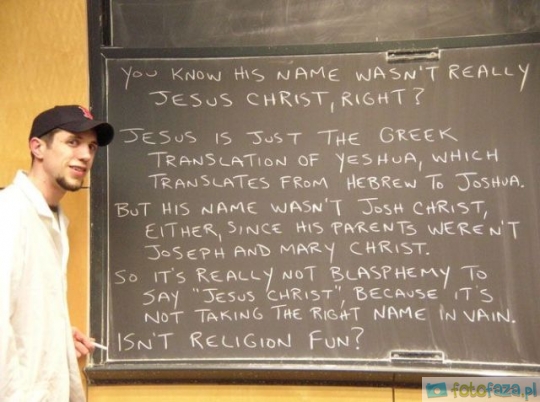 YOU KNOW HIS NAME WASN'T REALLY
JESUS CHRIST, RIGHT?
JESUS IS JUST THE GREEK
TRANSLATION OF YESHUA, WHICH
TRANSLATES FROM HEBREW TO JOSHUA.
BUT HIS NAME WASN'T JOSH CHRIST,
EITHER, SINCE HIS PARENTS WEREN'T
JOSEPH AND MARY CHRIST.
SO IT'S REALLY NOT BLASPHEMY TO
SAY "JESUS CHRIST", BECAUSE IT'S
NOT TAKING THE RIGHT NAME IN VAIN.
ISN'T RELIGION FUN?
fotofaza.pl